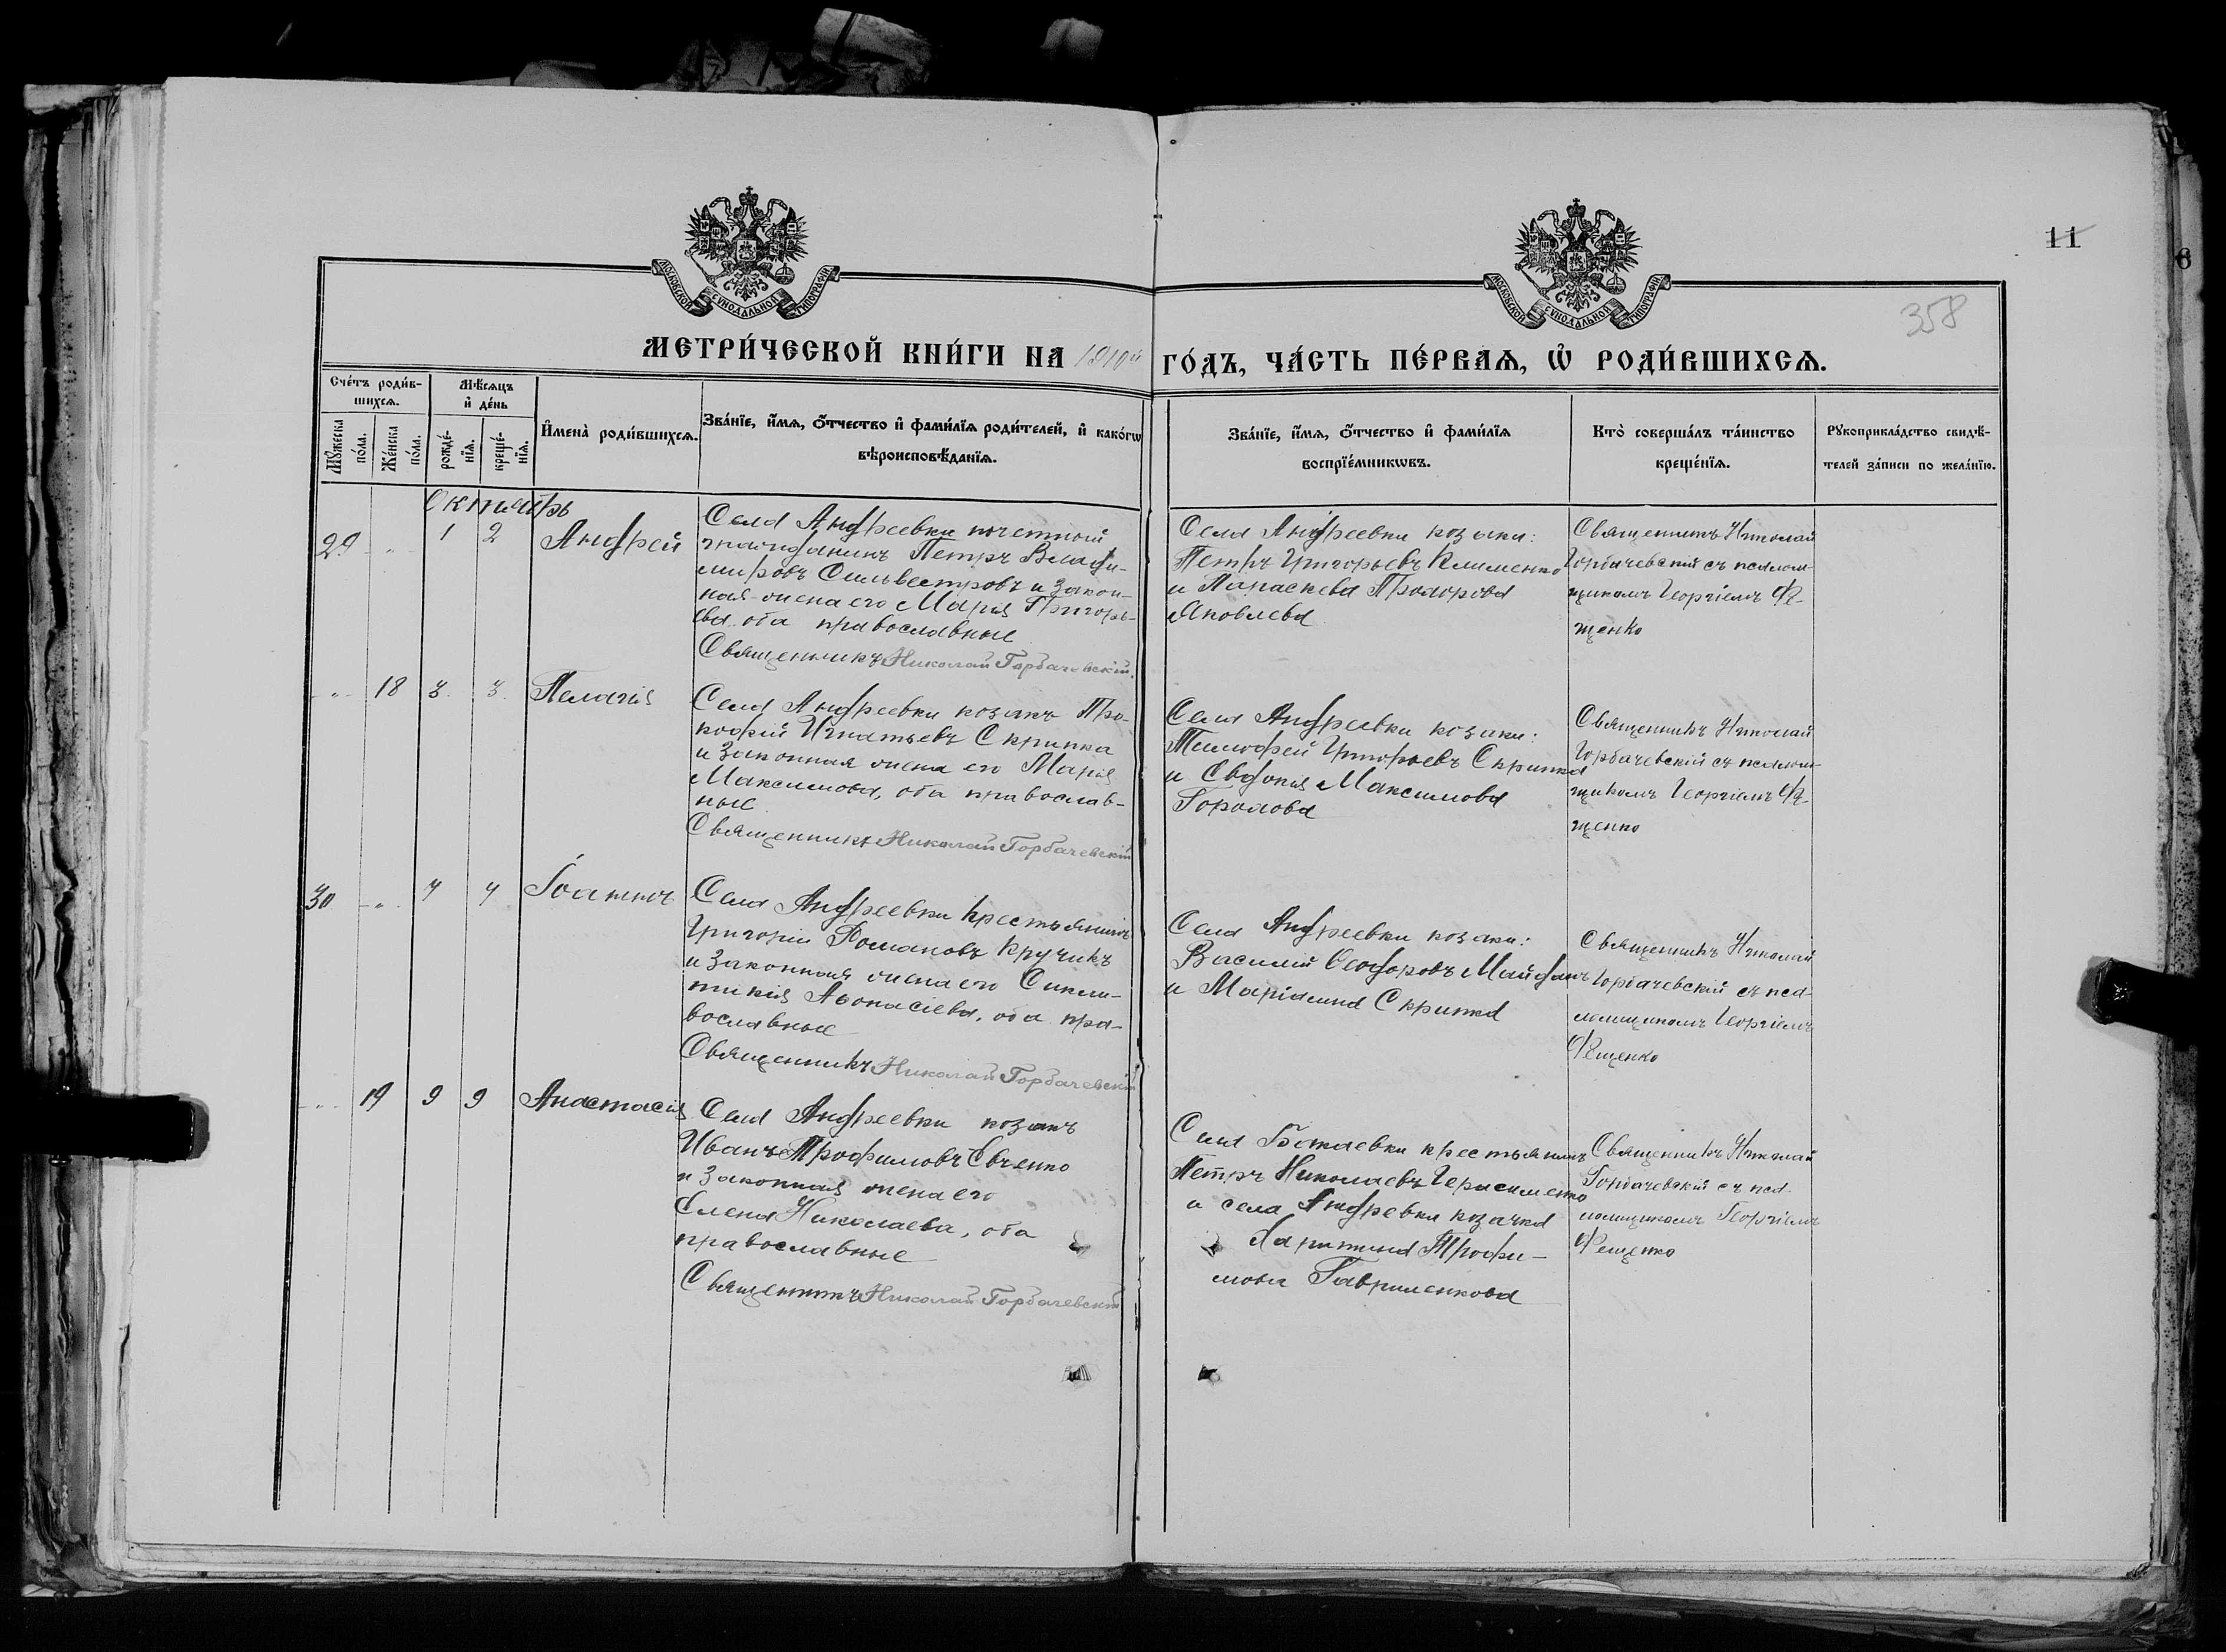 11
6
358
МОСКОВСКОЙ СѴНОДАЛЬНОЙ ТИПОГРАФІИ
МОСКОВСКОЙ СѴНОДАЛЬНОЙ ТИПОГРАФІИ
МЕТРИ́ЧЕСКОЙ КНИ́ГИ НА 1910й ГО́ДЪ, ЧА́СТЬ ПЕ́РВАЯ, Ѡ РОДИ́ВШИХСЯ.
Сче́тъ роди́в-
шихся.
Мѣ́сяцъ
и де́нь
Мꙋ́жеска
по́ла.
Же́нска
по́ла.
рожде́-
нїя.
креще́-
нїя.
И҆мена̀ роди́вшихся.
Зва́нїе, и҆́мя, ѻ҆́тчество и҆ фами́лїя роди́телей, и҆ како́гѡ
вѣроисповѣ́данїя.
Зва́нїе, и҆́мя, ѻ҆́тчество и҆ фами́лїя
воспрїе́мникѡвъ.
Кто̀ соверша́лъ та́инство
креще́нїя.
Рꙋкоприкла́дство свидѣ́-
телей за́писи по жела́нїю.
Октябрь
29 " 1 2 Андрей
Села Андреевки почетный
гражданинъ Петръ Влади-
мировъ Сильвестровъ и закон-
ная жена его Марія Григорь-
ева оба православные
Священникъ Николай Горбачевскій.
Села Андреевки козаки:
Петръ Григорьевъ Клименко
и Параскева Прохорова
Яковлева
Священникъ Николай
Горбачевскій съ псалом-
щикомъ Георгіемъ Фе-
щенко
" 18 3 3 Пелагія
Села Андреевки козакъ Про-
кофій Игнатьевъ Скрипка
и законная жена его Марія
Максимова, оба православ-
ные
Священникъ Николай Горбачевскій
Села Андреевки козаки:
Тимофей Григорьевъ Скрипка
и Евдокія Максимова
Горохова
Священникъ Николай
Горбачевскій съ псалом-
щикомъ Георгіемъ Фе-
щенко
30 " 7 7 Іоаннъ
Села Андреевки крестьянинъ
Григорій Романовъ Кручикъ
и законная жена его Синкли-
тикія Афонасіева, оба пра-
вославные
Священникъ Николай Горбачевскій
Села Андреевки козаки:
Василій Ѳеодоровъ Майданъ
и Маріанна Скрипка
Священникъ Николай
Горбачевскій съ пса-
ломщикомъ Георгіемъ
Фещенко
" 19 9 9 Анастасія
Села Андреевки козакъ
Иванъ Трофимовъ Евченко
и законная жена его
Елена Николаева, оба
православные
Священникъ Николай Горбачевскій
Села крестьянинъ
Петръ Николаевъ Герасименко
и села Андревки козачка
Харитина Трофи-
мова Гавриленкова
Священникъ Николай
Горбачевскій съ пса-
ломщикомъ Георгіемъ
Фещенко